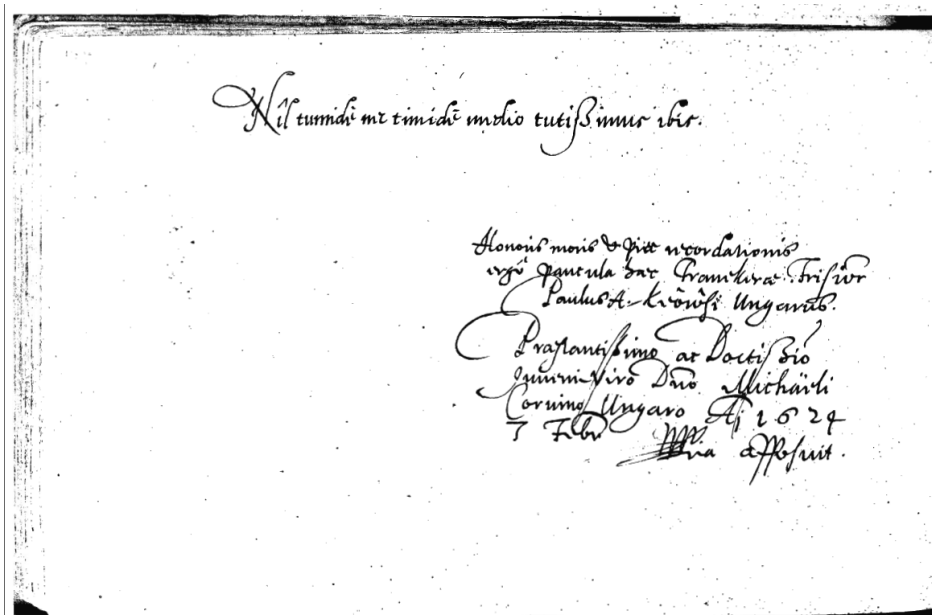 Nil tumidè nec timidè medio tutissimus ibis.
Honoris moris & piæ recordationis
ergò paucula hæc Franekeræ Frisiōr
Paulus A. Keörösi Ungarus.
Præstantissimo ac Doctissĩo
Juveni Viro Dño Michäeli
Corvino Ungaro Aͦ 1624
7 Febr appōsuit.